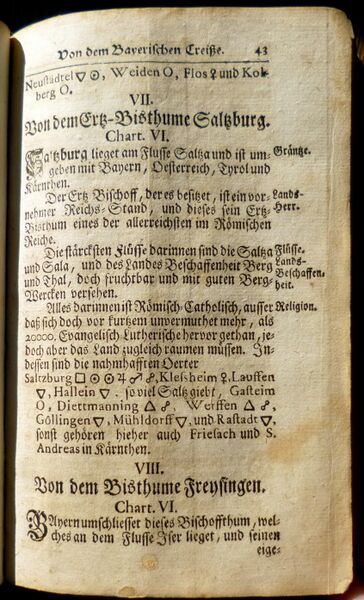 Von dem Bayerischen Creiße. 43
Neustädtel ▽ ☉, Weiden O, Flos ♀ und Kol-
berg O.
VII.
Von dem Ertz-Bisthume Saltzburg.
Chart. VI.
Saltzburg lieget am Flusse Saltza und ist um- Gräntze.
geben mit Bayern, Oesterreich, Tyrol und
Kärnthen.
Der Ertz Bischoff, der es besitzet, ist ein vor- Lands-
nehmer Reichs-Stand, und dieses sein Ertz- Herr.
Bisthum eines der allerreichsten im Römischen
Reiche.
Die stärcksten Flüsse darinnen sind die Saltza Flüsse.
und Sala, und des Landes Beschaffenheit Berg Lands-
und Thal, doch fruchtbar und mit guten Berg- Beschaffen-
Wercken versehen. heit.
Alles darinnen ist Römisch-Catholisch, ausser Religion.
daß sich doch vor kurtzem unvermuthet mehr, als
20000. Evangelisch Lutherische hervor gethan, je-
doch aber das Land zugleich raumen müssen. In-
dessen sind die nahmhafften Oerter
Saltzburg □ ☉ ☉ ♃ ♂ ☍, Klesheim ♀, Lauffen
▽, Hallein ▽. so viel Saltz giebt, Gasteim
O, Diettmanning △ ☍, Werffen △ ☍,
Göllingen ▽, Mühldorff ▽, und Rastadt ▽,
sonst gehören hieher auch Friesach und S.
Andreas in Kärnthen.
VIII.
Von dem Bisthume Freysingen.
Chart. VI.
Bayern umschliesset dieses Bischoffthum, wel-
ches an dem Flusse Iser lieget, und seinen
eige-